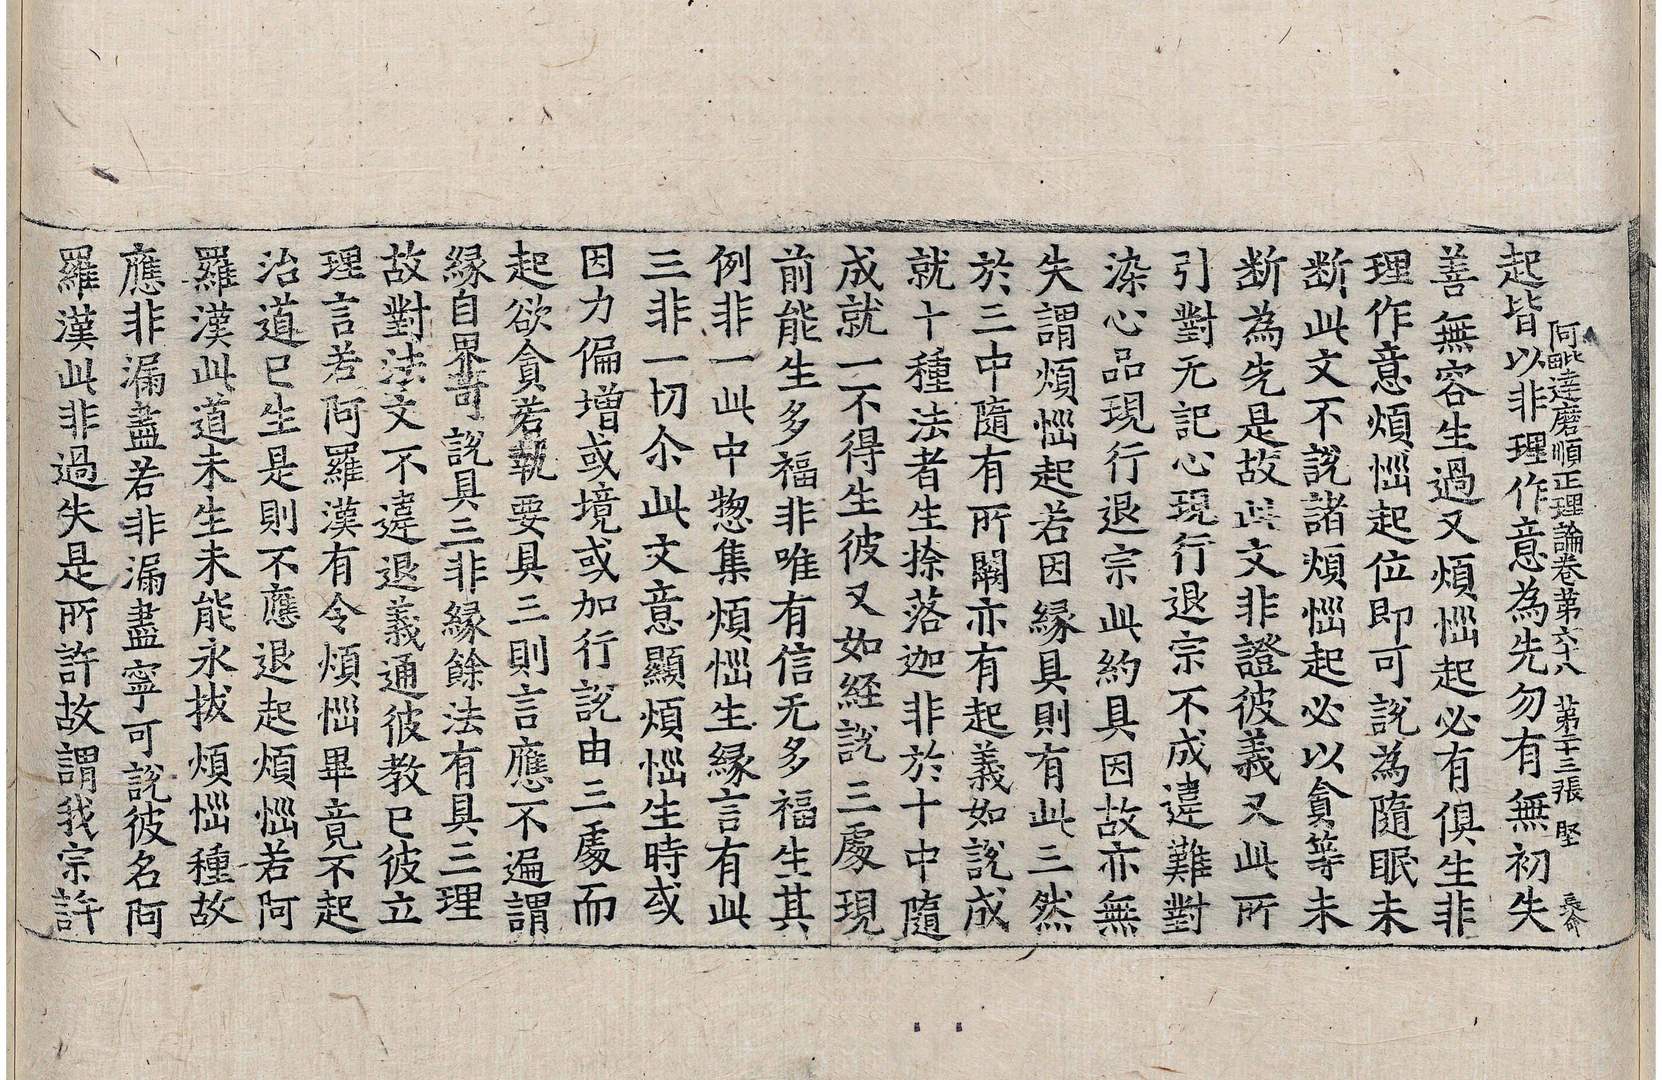 阿毗達磨順正理論卷第六十八 第二十三張 堅
起皆以非理作意為先勿有無初失
善無容生過又煩惱起必有俱生非
理作意煩惱起位即可說為隨眠未
断此文不說諸煩惱起必以貪等未
断為先是故此文非證彼義又此所
引對无記心現行退宗不成違難對
染心品現行退宗此約具因故亦無
失謂煩惱起若因緣具則有此三然
於三中隨有所闕亦有起義如說成
就十種法者生捺落迦非於十中隨
成就一不得生彼又如經說三處現
前能生多福非唯有信无多福生其
例非一此中惣集煩惱生緣言有此
三非一切尒此文意顯煩惱生時或
因力偏增或境或加行說由三處而
起欲貪若執要具三則言應不遍謂
緣自界可說具三非緣餘法有具三理
故對法文不違退義通彼教已彼立
理言若阿羅漢有令煩惱畢竟不起
治道已生是則不應退起煩惱若阿
羅漢此道未生未能永拔煩惱種故
應非漏盡若非漏盡寧可說彼名阿
羅漢此非過失是所許故謂我宗許